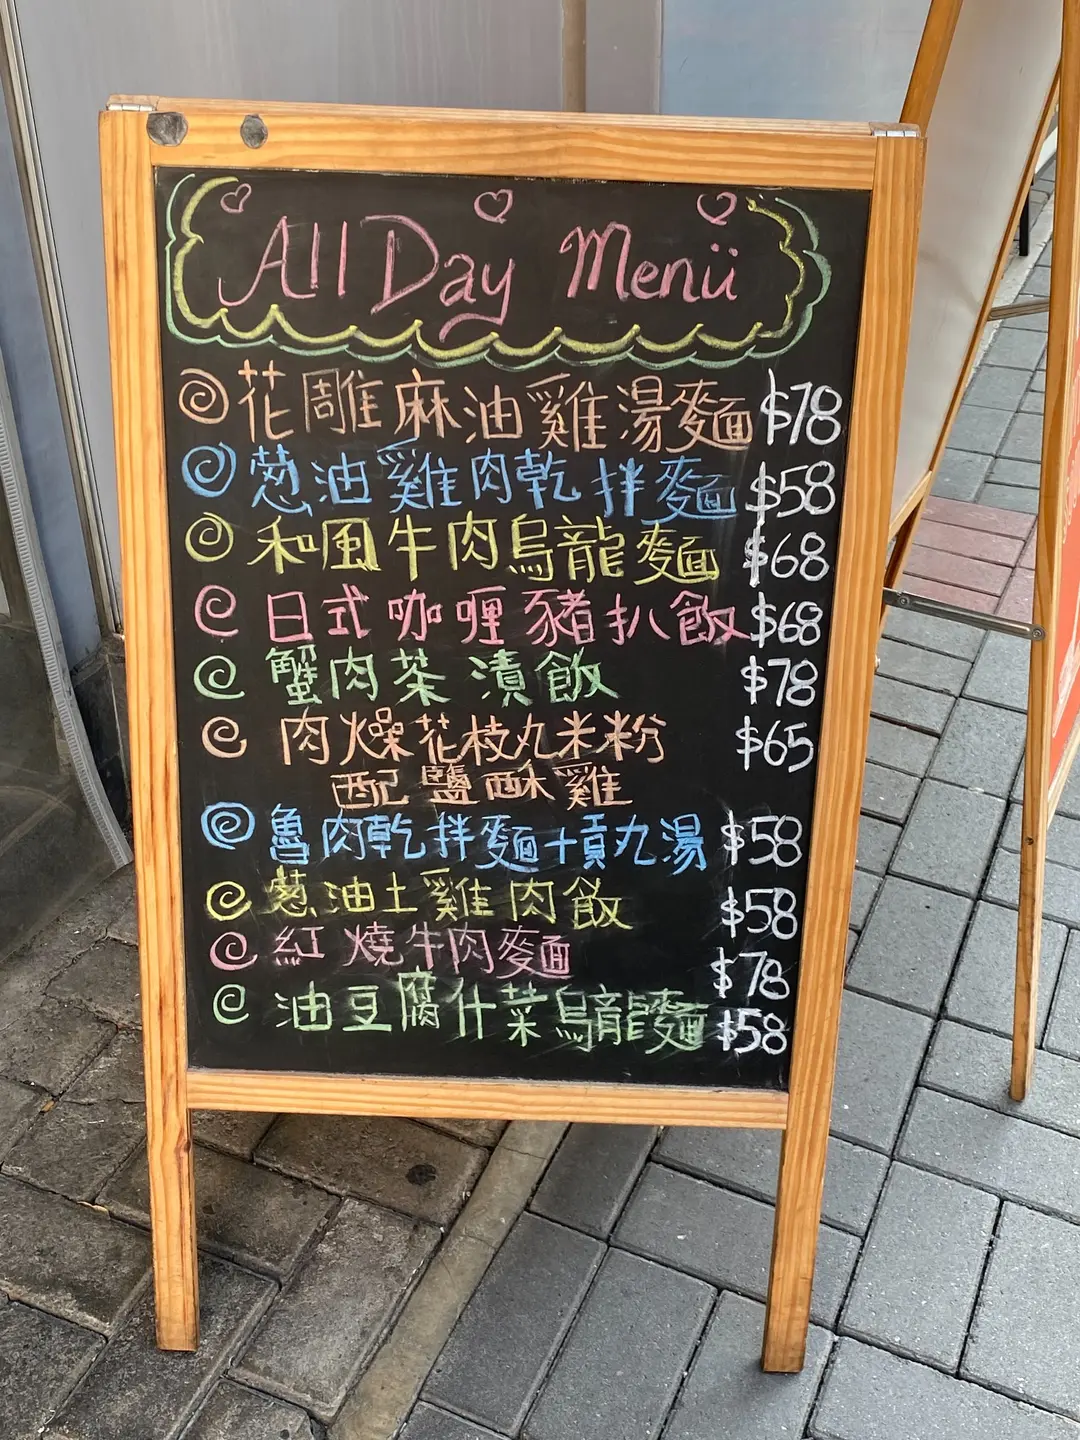 All Day Menü
花雕麻油雞湯麵 $78
蔥油雞肉乾拌麵 $58
和風牛肉烏龍麵 $68
日式咖喱豬扒飯 $68
蟹肉茶漬飯 $78
肉燥花枝丸米粉 $65
配鹽酥雞
魯肉乾拌麵+貢丸湯 $58
蔥油土雞肉飯 $58
紅燒牛肉麵 $78
油豆腐什菜烏龍麵 $58